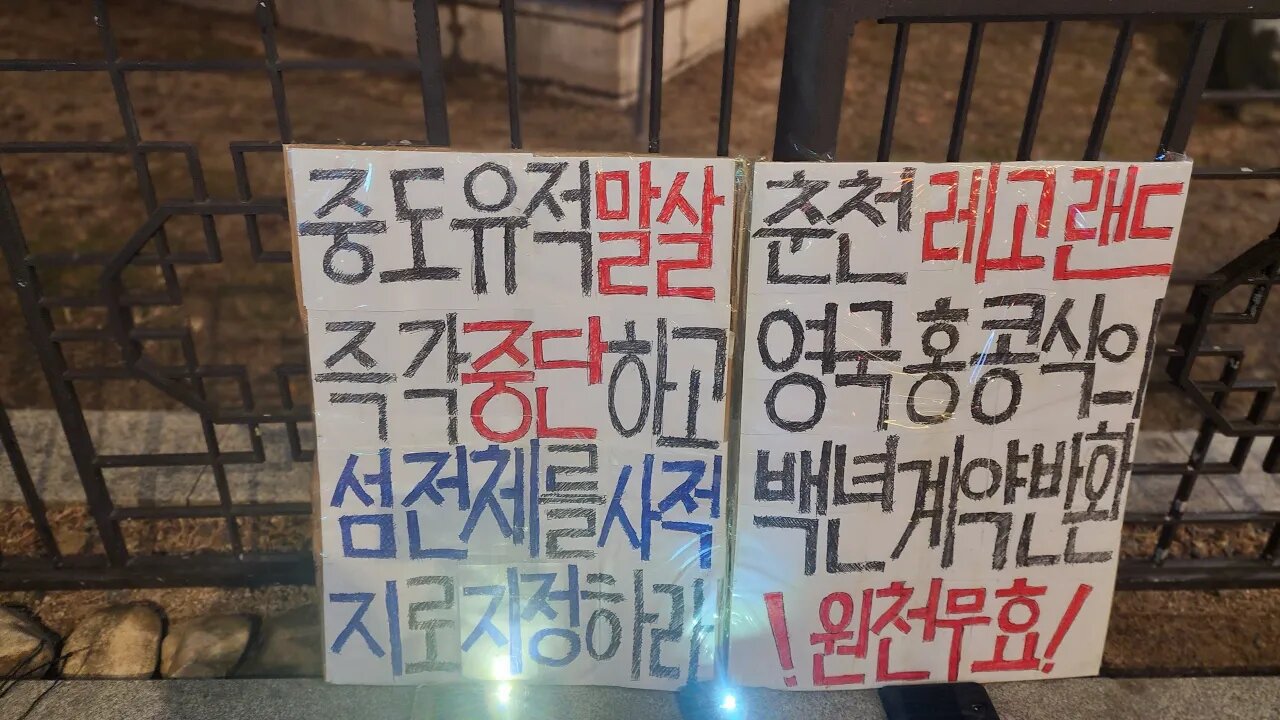 중도유적말살
즉각중단하고
섬전체를사적
지로지정하라
춘천레고랜드
영국홍콩식의
백년계약반환
!원천무효!